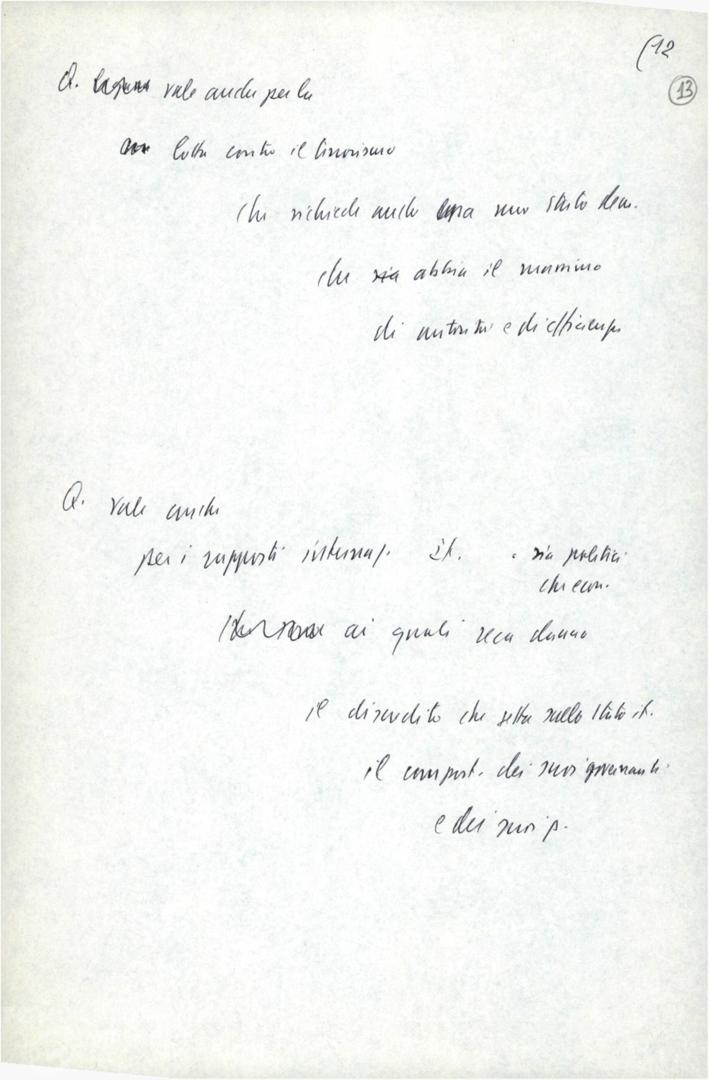 (12
13
Q. vale anche per la
lotta contro il terrorismo
che richiede anche uno stato dem.
che abbia il massimo
di autorità e di efficienza
Q. vale anche
per i rapporti internaz. it. sia politici
che econ.
ai quali reca danno
il discredito che getta sullo stato it.
il comport. dei suoi governanti
e dei suoi p.